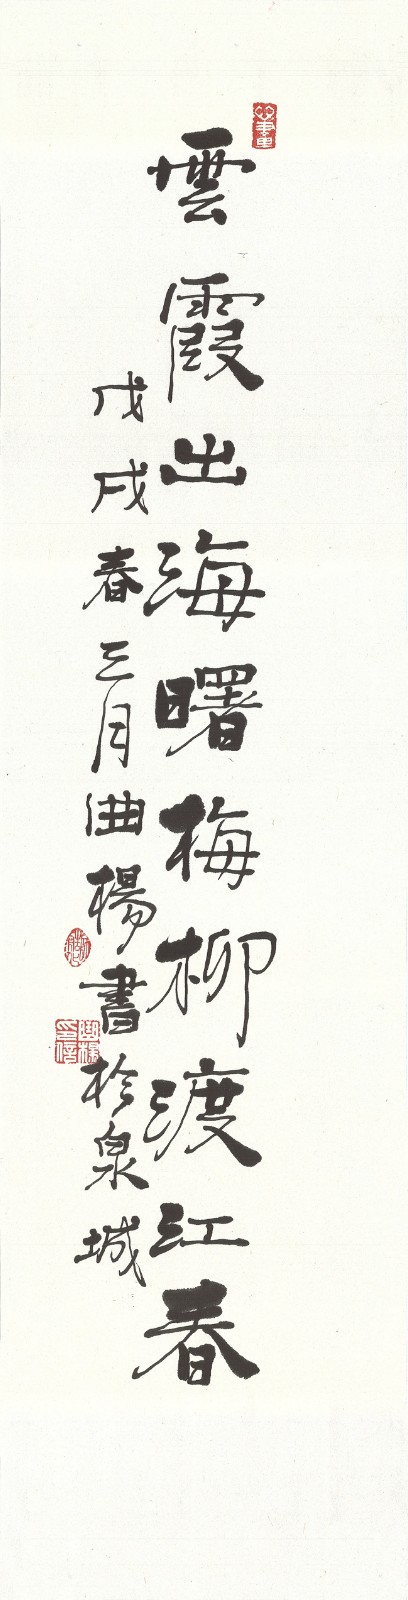 雲霞出海曙梅柳渡江春
戊戌春三月曲楊書於泉城